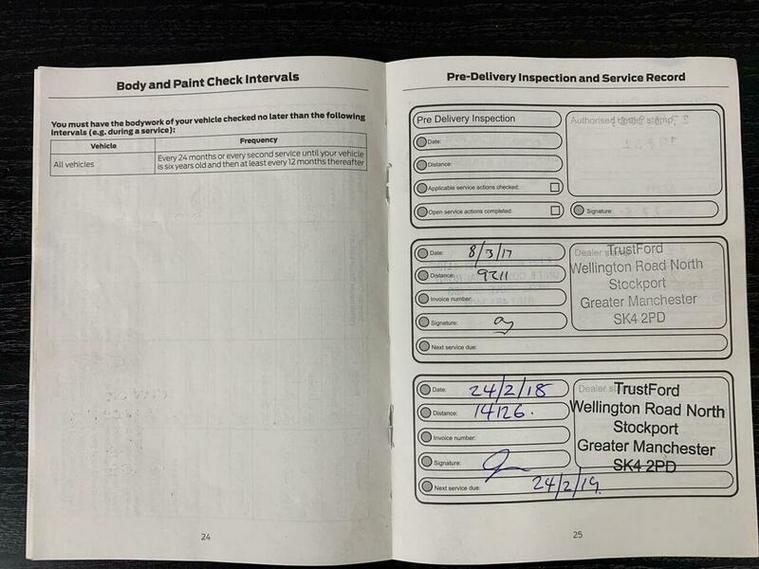 Body and Paint Check Intervals
You must have the bodywork of your vehicle checked no later than the following
intervals (e.g. during a service):
Vehicle Frequency
All vehicles
Every 24 months or every second service until your vehicle
is six years old and then at least every 12 months thereafter
24
Pre-Delivery Inspection and Service Record
Pre Delivery Inspection
Date:
Distance:
Applicable service actions checked:
Open service actions completed:
Authorised
Signature:
Date: 8/3/17
Distance: 9211
Invoice number:
Signature:
Next service due:
Dealer
TrustFord
Wellington Road North
Stockport
Greater Manchester
SK4 2PD
Date: 24/2/18
Distance: 14126.
Invoice number:
Signature:
Next service due: 24/2/19.
Dealer
TrustFord
Wellington Road North
Stockport
Greater Manchester
SK4 2PD
25